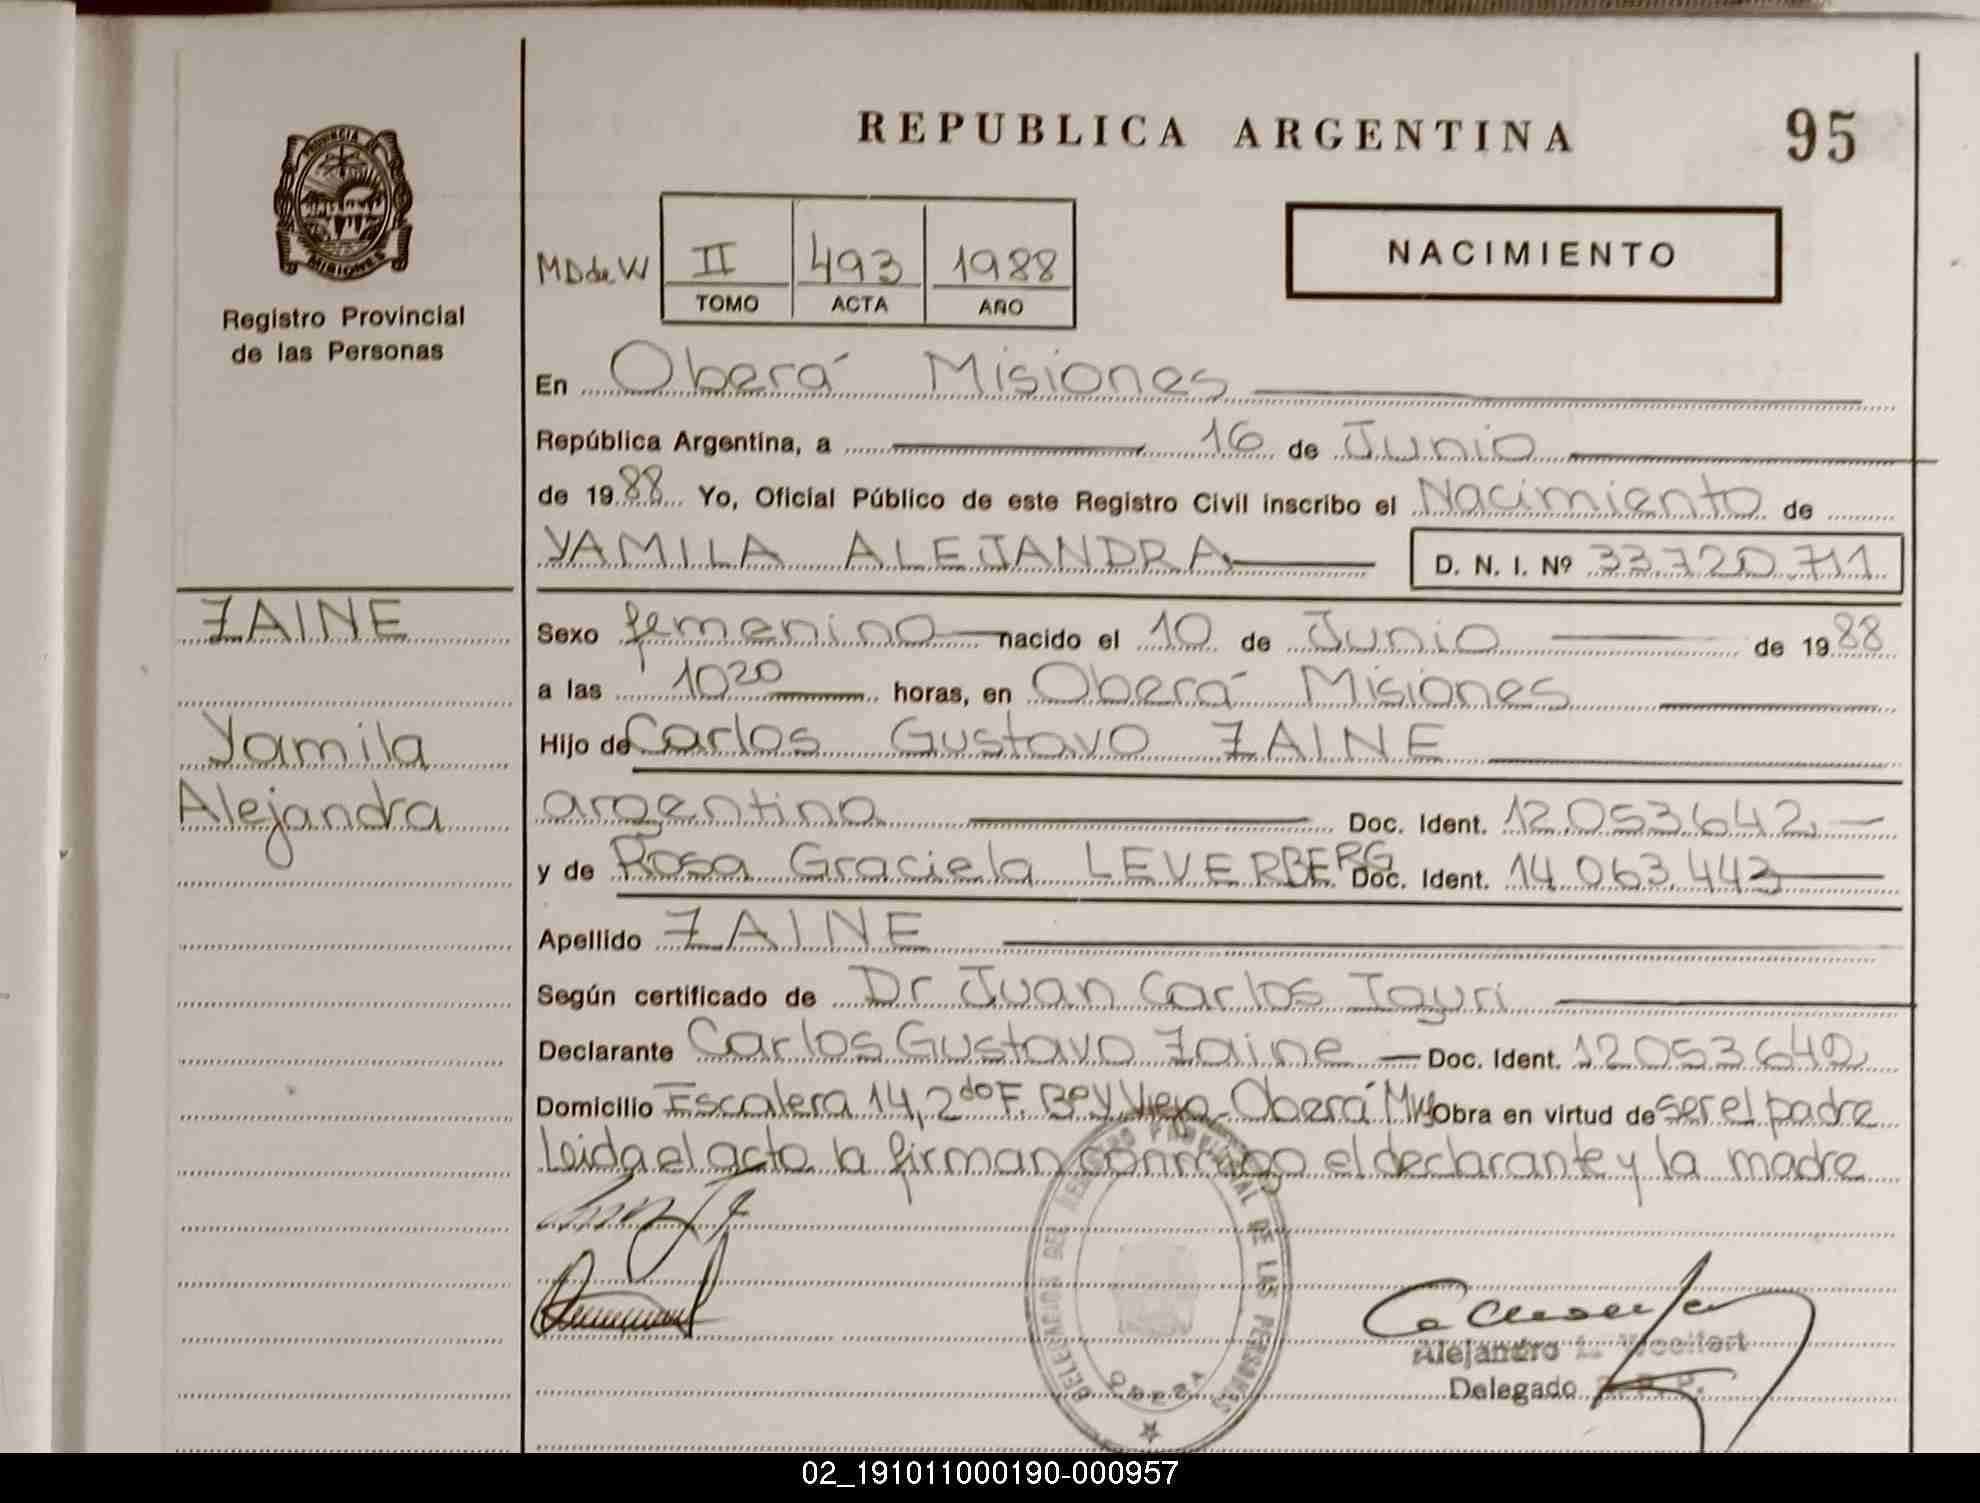 REPUBLICA ARGENTINA
95
PROVINCIA DE
MISIONES
Registro Provincial
de las Personas
MD de W
II
493
1988
TOMO
ACTA
AÑO
NACIMIENTO
En Oberá Misiones
República Argentina, a 16 de Junio
de 1988 Yo, Oficial Público de este Registro Civil inscribo el Nacimiento de
YAMILA ALEJANDRA
D. N. I. Nº 33.720.711
ZAINE
Yamila
Alejandra
Sexo femenino nacido el 10 de Junio de 1988
a las 10 20 horas, en Oberá Misiones
Hijo de Carlos Gustavo ZAINE
argentino Doc. Ident. 12.053.642
y de Rosa Graciela LEVERBERG Doc. Ident. 14.063.443
Apellido ZAINE
Según certificado de Dr Juan Carlos
Declarante Carlos Gustavo Zaine Doc. Ident. 12.053.642
Domicilio Escalera 14, 2do F. Viejo Oberá Obra en virtud de ser el padre
Leida el acta la firman conmigo el declarante y la madre
DELEGACION DEL REGISTRO PROVINCIAL DE LAS PERSONAS
OBERA
Alejandro
Delegado
02_191011000190-000957